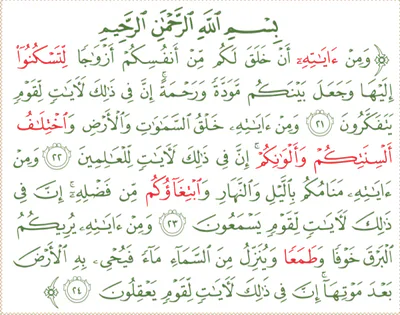 بِسْمِ اللَّهِ الرَّحْمَٰنِ الرَّحِيمِ
﴿ وَمِنْ ءَايَٰتِهِۦٓ أَنْ خَلَقَ لَكُم مِّنْ أَنفُسِكُمْ أَزْوَٰجًا لِّتَسْكُنُوٓا۟
إِلَيْهَا وَجَعَلَ بَيْنَكُم مَّوَدَّةً وَرَحْمَةً ۚ إِنَّ فِى ذَٰلِكَ لَءَايَٰتٍ لِّقَوْمٍ
يَتَفَكَّرُونَ ٢١ وَمِنْ ءَايَٰتِهِۦ خَلْقُ السَّمَٰوَٰتِ وَالْأَرْضِ وَاخْتِلَٰفُ
أَلْسِنَتِكُمْ وَأَلْوَٰنِكُمْ ۚ إِنَّ فِى ذَٰلِكَ لَءَايَٰتٍ لِّلْعَٰلِمِينَ ٢٢ وَمِنْ
ءَايَٰتِهِۦ مَنَامُكُم بِالَّيْلِ وَالنَّهَارِ وَابْتِغَآؤُكُم مِّن فَضْلِهِۦٓ ۚ إِنَّ فِى
ذَٰلِكَ لَءَايَٰتٍ لِّقَوْمٍ يَسْمَعُونَ ٢٣ وَمِنْ ءَايَٰتِهِۦ يُرِيكُمُ
الْبَرْقَ خَوْفًا وَطَمَعًا وَيُنَزِّلُ مِنَ السَّمَآءِ مَآءً فَيُحْىِۦ بِهِ الْأَرْضَ
بَعْدَ مَوْتِهَآ ۚ إِنَّ فِى ذَٰلِكَ لَءَايَٰتٍ لِّقَوْمٍ يَعْقِلُونَ ٢٤ ﴾